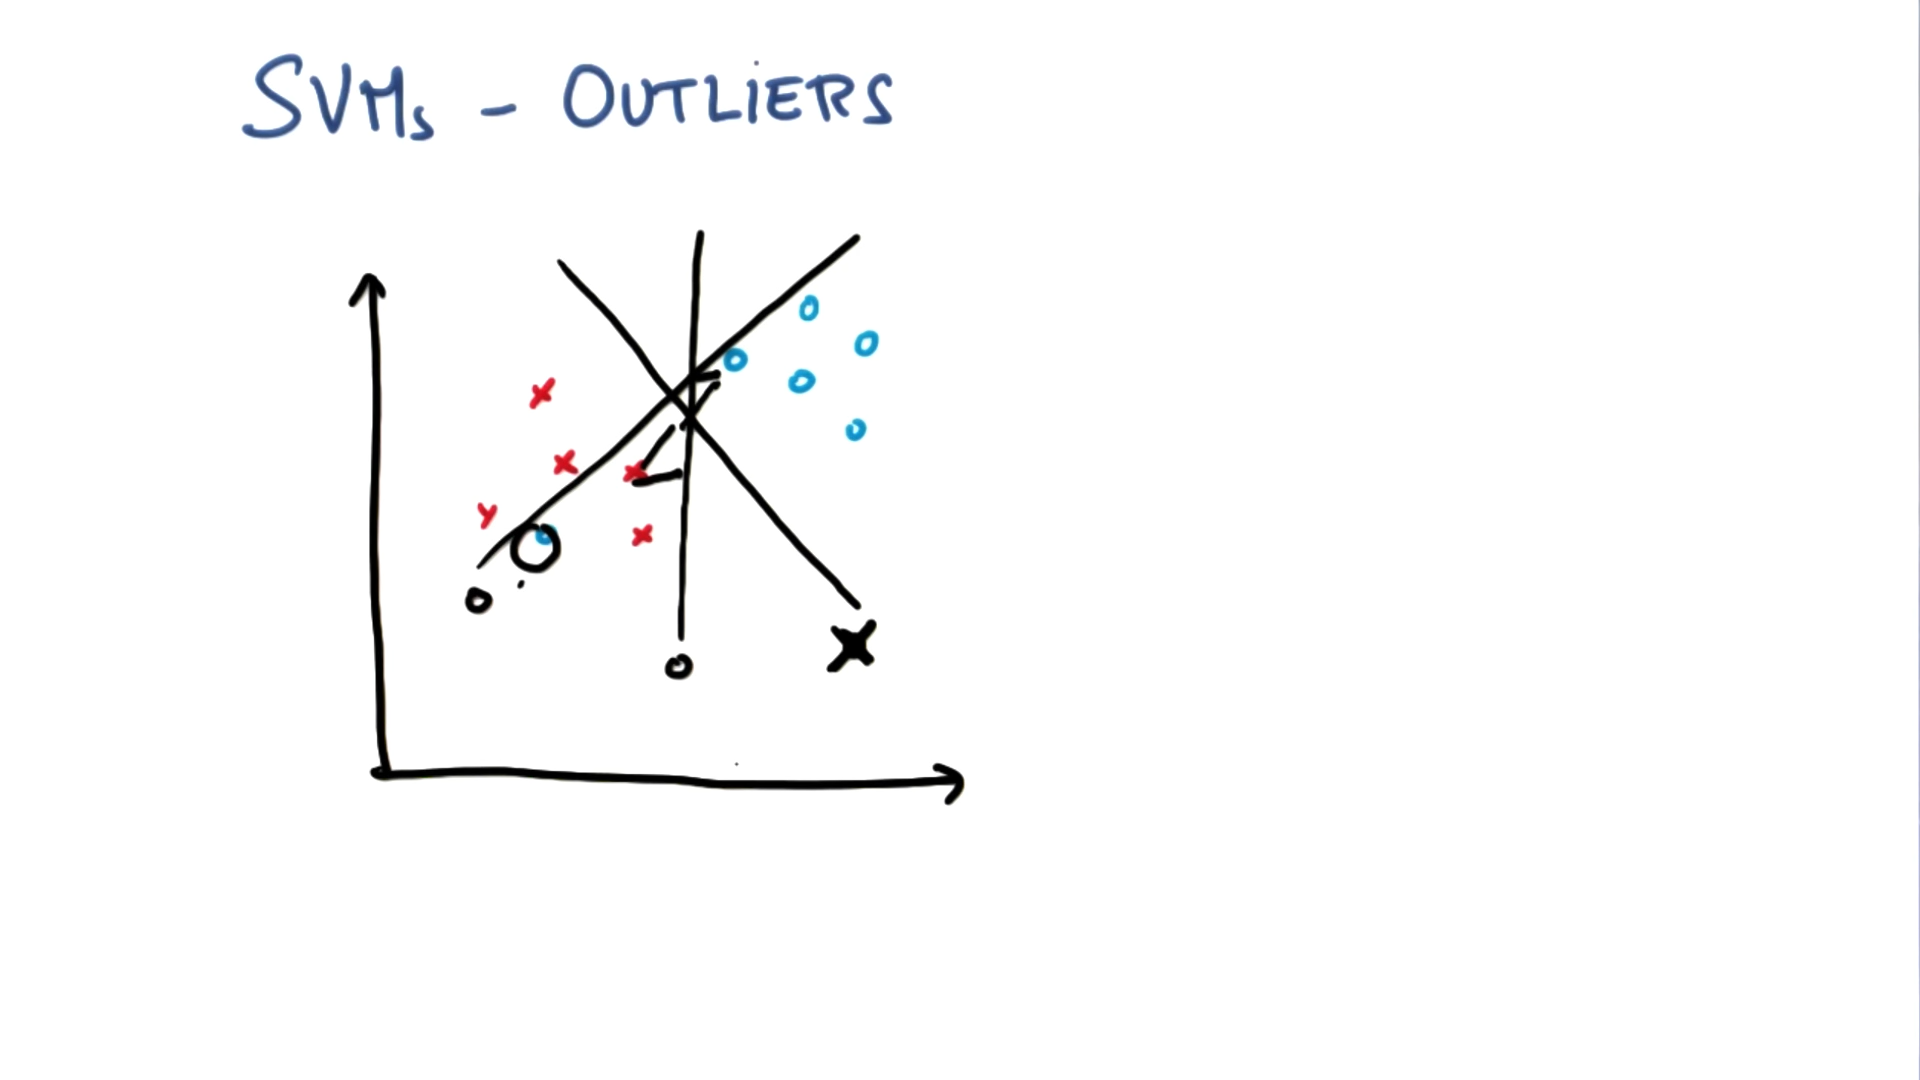 SVMs - OUTLIERS